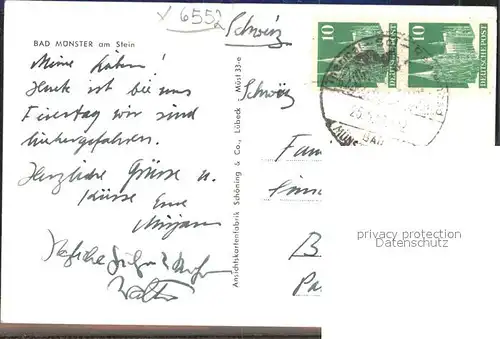 × 6552
Schweiz
BAD MÜNSTER am Stein
Meine Lieben!
Heute ist bei uns
Feiertag wir sind
hierhergefahren.
Herzliche Grüsse u.
Küsse Eure
Mirjam
Herzliche
Walter
Ansichtskartenfabrik Schöning & Co., Lübeck Müst 33-e
10
DEUTSCHE POST
10
DEUTSCHE POST
BAD
MÜNS
Schweiz
Fam
B
Pa
privacy protection
Datenschutz